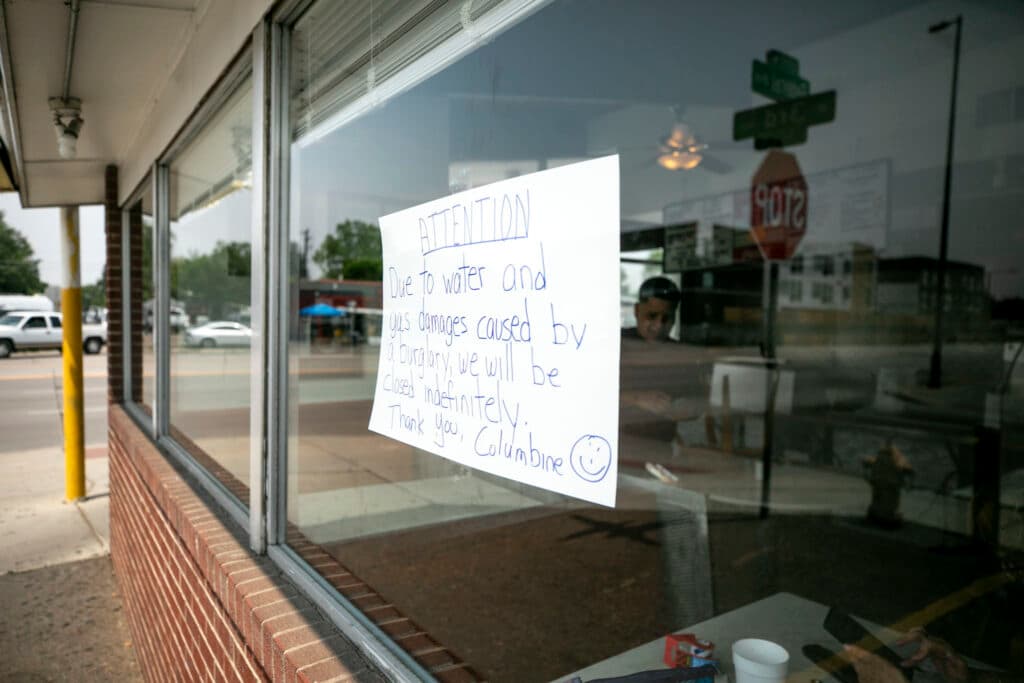 ATTENTION
Due to water and
gas damages caused by
a burglary, we will be
closed indefinitely.
Thank you, Columbine
STOP